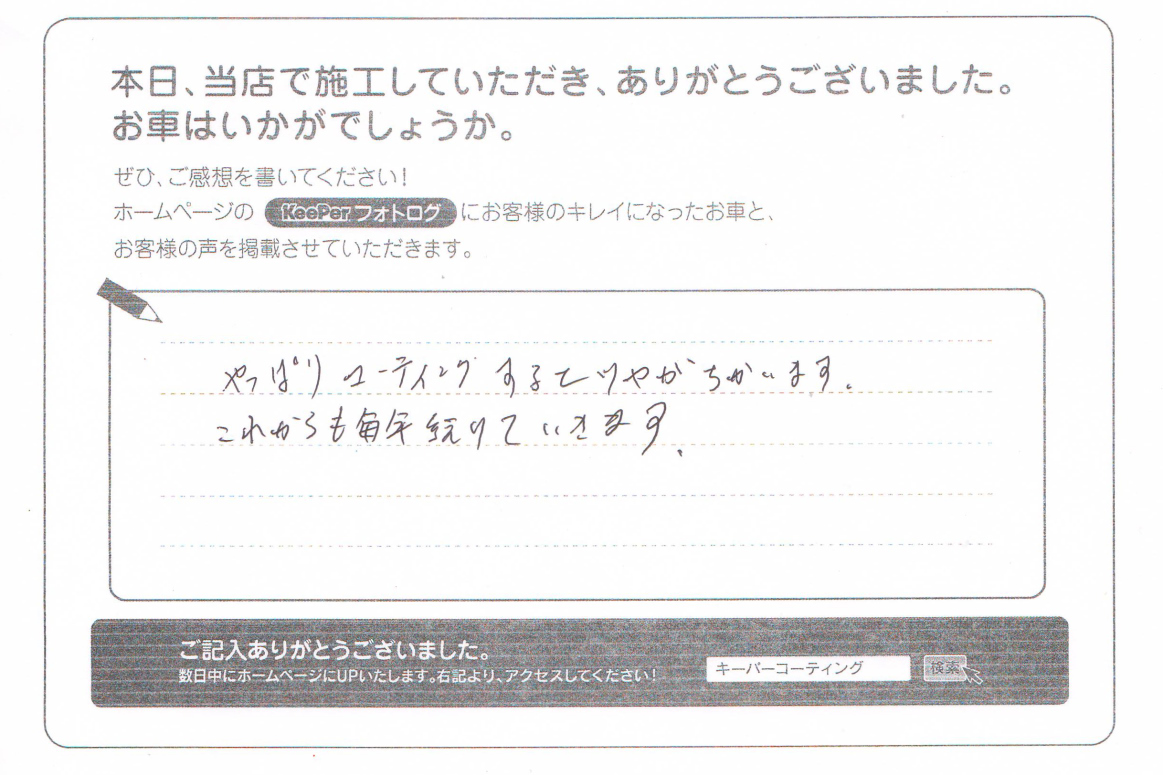 本日、当店で施工していただき、ありがとうございました。
お車はいかがでしょうか。
ぜひ、ご感想を書いてください!
ホームページの KeePer フォトログ にお客様のキレイになったお車と、
お客様の声を掲載させていただきます。
やっぱりコーティングするとツヤがちがいます。
これからも毎年続けていきます。
ご記入ありがとうございました。
数日中にホームページにUPいたします。右記より、アクセスしてください!
キーパーコーティング 検索